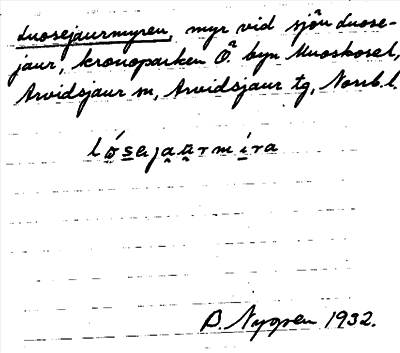 Luosejaurmyren, myr vid sjön Luose-
jaur, kronoparken Ö. byn Muoskosel,
Arvidsjaur sn, Arvidsjaur tg, Norrb. l.
lósejaurmíra
B. Nygren 1932.